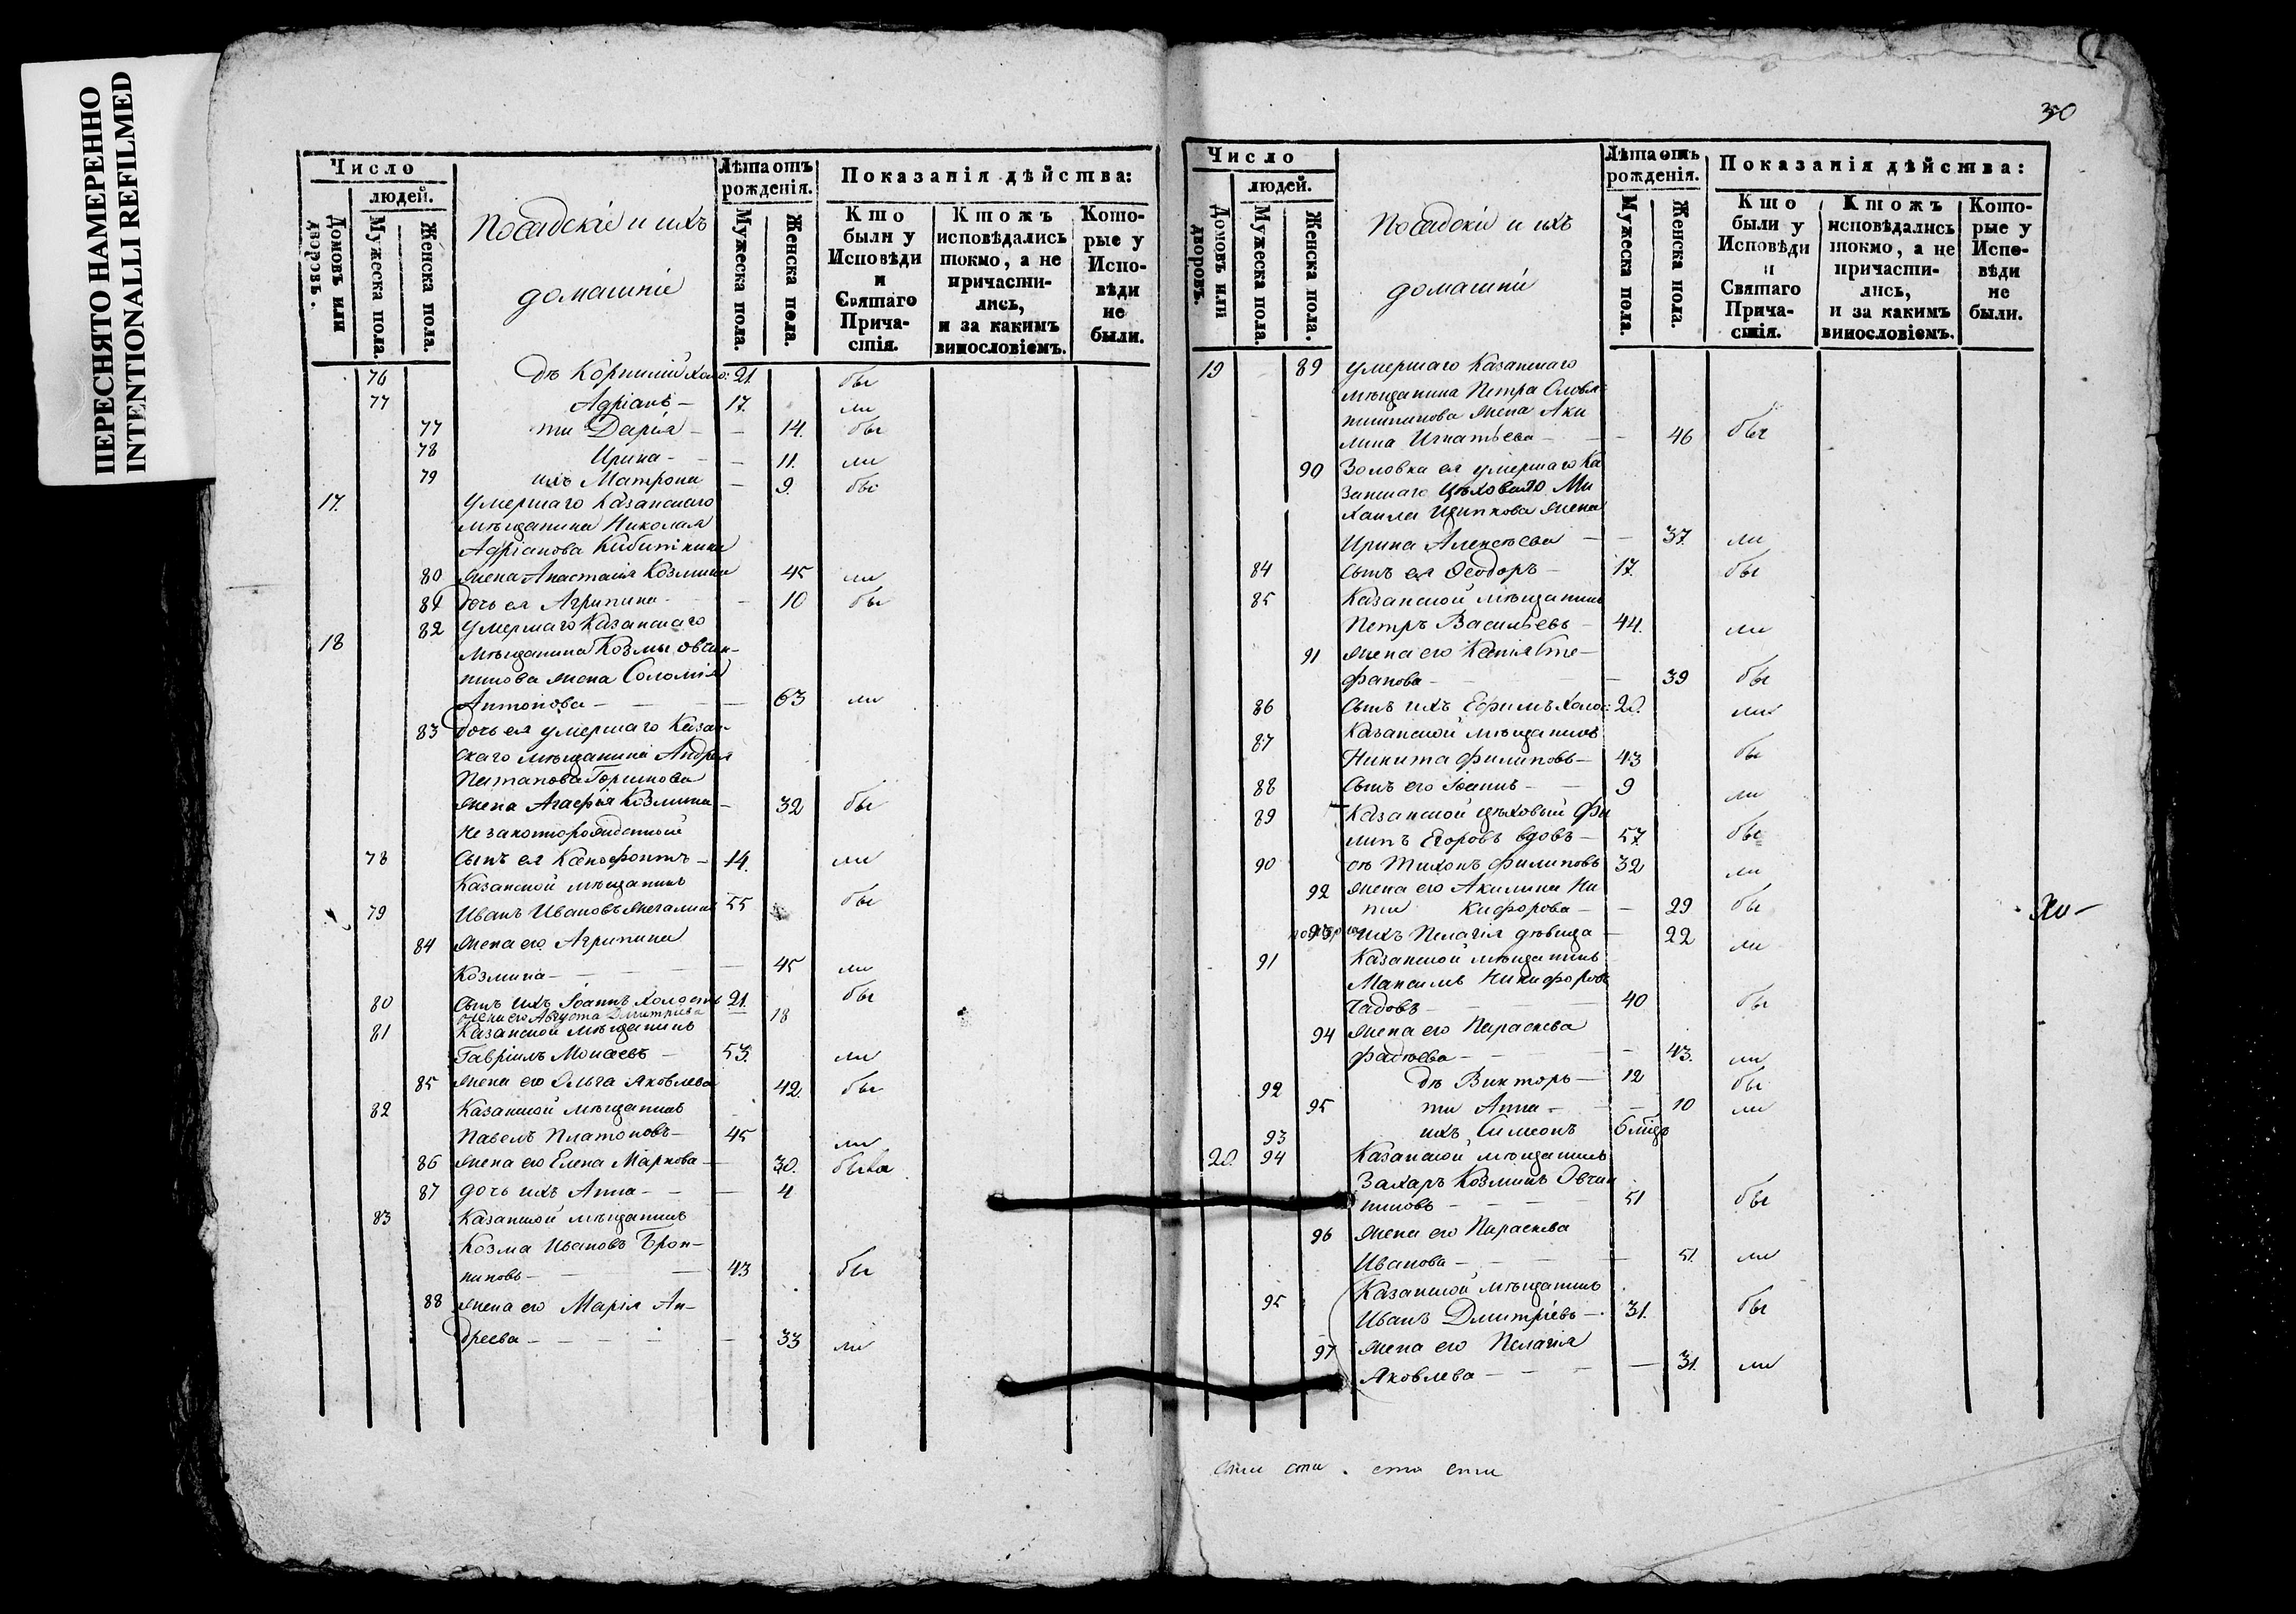 ПЕРЕСНЯТО НАМЕРЕННО
INTENTIONALLI REFILMED
Число
людей.
Домовъ или дворовъ.
Мужеска пола.
Женска пола.
Посадскіе и ихъ
домашніе
Лѣта отъ рожденія.
Мужеска пола.
Женска пола.
Показанія дѣйства:
Кто были у Исповѣди и Святаго Причастія.
Ктожъ исповѣдались токмо, а не причастились, и за какимъ винословіемъ.
Которые у Исповѣди не были.
76 дѣ Корнилій холо: 21. бы
77 Адріанъ — 17. ли
77 ти Дарія — 14. бы
78 Ирина — 11. ли
79 ихъ Матрона — 9. бы
17. Умершаго Казанскаго
мѣщанина Николая
Адріанова Кибиткина
80 жена Анастасія Козмина 45 ли
81 дочь ея Агрипина — 10 бы
82 Умершаго Казанскаго
18 мѣщанина Козмы Овчин-
никова жена Соломія
Антонова — 63 ли
83 дочь ея умершаго Казан-
скаго мѣщанина Андрея
жена Агафія Козмина — 32 бы
незаконторожденной
78 сынъ ея Ксенофонтъ — 14. ли
Казанской мѣщанинъ
79 Иванъ Ивановъ 55 бы
84 жена его Агрипина
Козмина — 45 ли
80 сынъ ихъ Іоаннъ холостъ 21. бы
жена его Августа Дмитріева 18
81 Казанской мѣщанинъ
Гавріилъ Моисеевъ — 53. ли
85 жена его Ольга Яковлева 42. бы
82 Казанской мѣщанинъ
Павелъ Платоновъ — 45 ли
86 жена его Елена Маркова — 30. была
87 дочь ихъ Анна — 4
83 Казанской мѣщанинъ
Козма Ивановъ Брон-
никовъ — 43 бы
88 жена его Марія Ан-
дреева — 33 ли
30
Число
людей.
Домовъ или дворовъ.
Мужеска пола.
Женска пола.
Посадскіе и ихъ
домашніе
Лѣта отъ рожденія.
Мужеска пола.
Женска пола.
Показанія дѣйства:
Кто были у Исповѣди и Святаго Причастія.
Ктожъ исповѣдались токмо, а не причастились, и за какимъ винословіемъ.
Которые у Исповѣди не были.
19 89 умершаго Казанскаго
мѣщанина Петра
жена Аки
лина Игнатьева — 46 бы
90 Золовка ея умершаго Ка
занскаго цѣховаго Ми
хаила Щипкова жена
Ирина Алексѣева — 37. ли
84 сынъ ея Ѳеодоръ — 17. бы
85 Казанской мѣщанинъ
Петръ Васильевъ — 44. ли
91 жена его Ксенія Сте-
фанова — 39 бы
86 сынъ ихъ Ефимъ холос: 20. ли
87 Казанской мѣщанинъ
Никита Филиповъ — 43 бы
88 сынъ его Іоаннъ — 9 ли
89 Казанской цѣховый Фи
липъ Егоровъ вдовъ — 57. бы
90 дѣ Тихонъ Филиповъ 32 ли
92 жена его Акилина Ни
ти кифорова — 29 бы
93 ихъ Пелагія дѣвица — 22 ли
91 Казанской мѣщанинъ
Максимъ Никифоровъ
Чадовъ — 40 бы
94 жена его Параскева
Фадѣева — 43. ли
92 дѣ Викторъ — 12 бы
95 ти Анна — 10 ли
93 ихъ Симеонъ 6 мцъ
20. 94 Казанской мѣщанинъ
Захаръ Козминъ Овчин
никовъ — 51 бы
96 жена его Параскева
Иванова — 51. ли
95 Казанской мѣщанинъ
Иванъ Дмитріевъ — 31. бы
97 жена его Пелагія
Яковлева — 31. ли
сти сти . сти сти